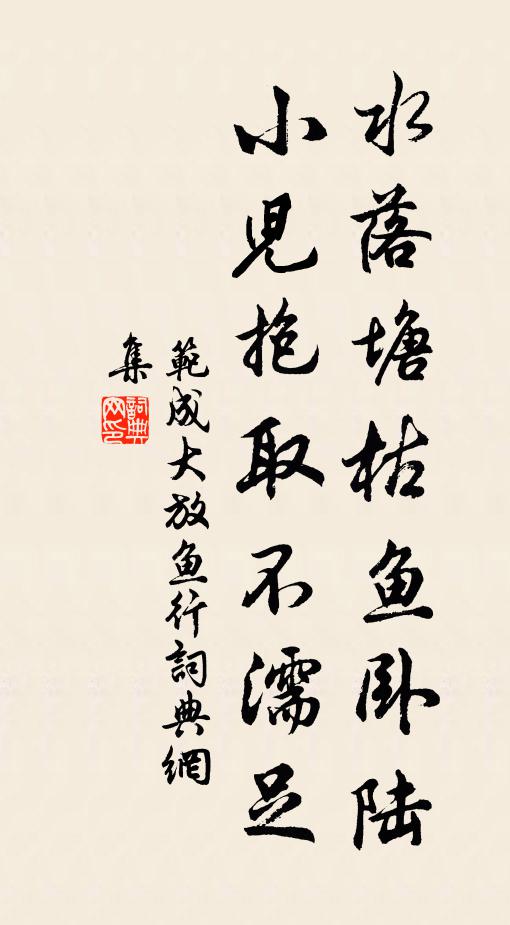 水落塘枯鱼卧陆
小児抱取不濡足
範成大放鱼行詞典網
集
詞典
网印